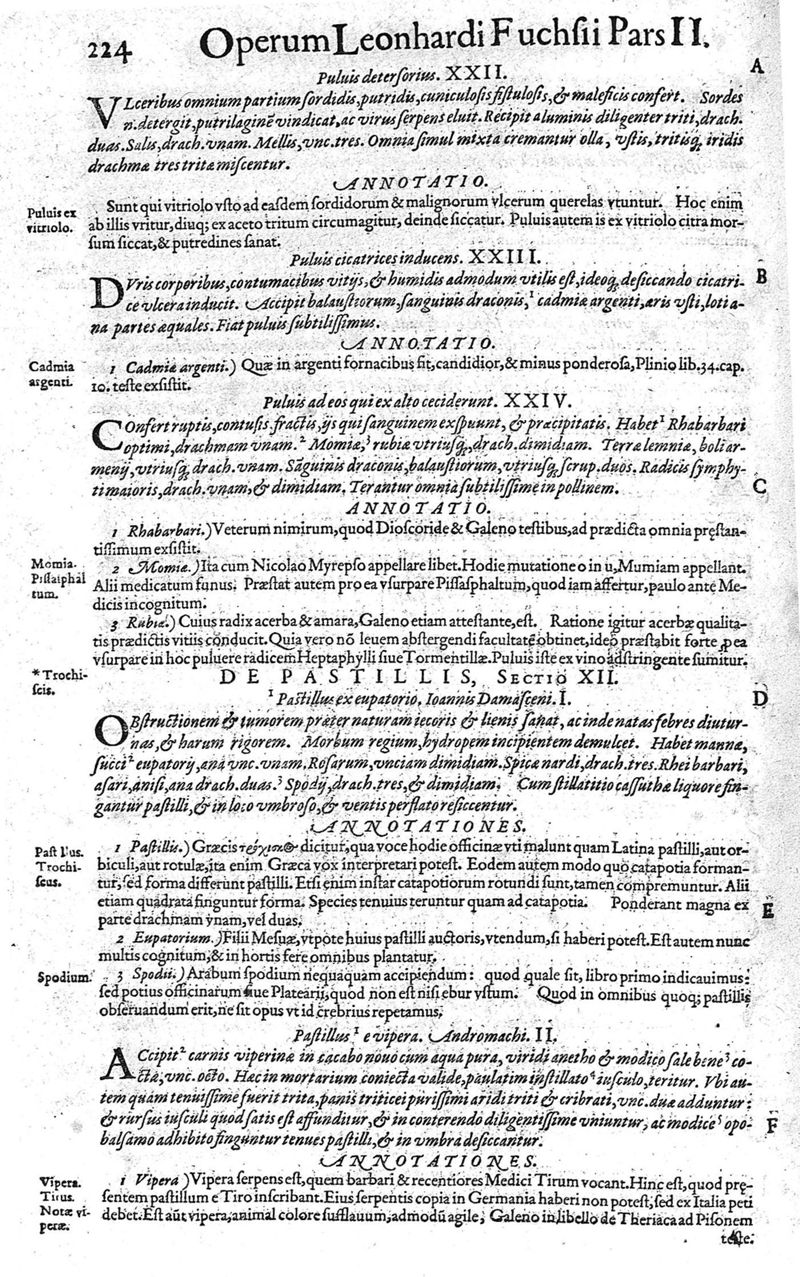 224 Operum Leonhardi Fuchsii Pars II.
Puluis detersorius. XXII.
A
VLceribus omnium partium sordidis, putridis, cuniculosis fistulosis, & maleficis confert. Sordes
n. detergit, putrilaginē vindicat, ac virus serpens eluit. Recipit aluminis diligenter triti, drach.
duas. Salis, drach. vnam. Mellis, vnc. tres. Omnia simul mixta cremantur olla, vstis, tritisq; iridis
drachmæ tres tritæ miscentur.
ANNOTATIO.
Puluis ex
vitriolo.
Sunt qui vitriolo vsto ad easdem sordidorum & malignorum vlcerum querelas vtuntur. Hoc enim
ab illis vritur, diuq; ex aceto tritum circumagitur, deinde siccatur. Puluis autem is ex vitriolo citra mor-
sum siccat, & putredines sanat.
Puluis cicatrices inducens. XXIII.
B
DVris corporibus, contumacibus vitijs, & humidis admodum vtilis est, ideoq; desiccando cicatri-
ce vlcera inducit. Accipit balaustiorum, sanguinis draconis, 1 cadmiæ argenti, æris vsti, loti a-
na partes æquales. Fiat puluis subtilissimus.
ANNOTATIO.
Cadmia
argenti.
1 Cadmiæ argenti.) Quæ in argenti fornacibus fit, candidior, & minus ponderosa, Plinio lib. 34. cap.
10. teste exsistit.
Puluis ad eos qui ex alto ceciderunt. XXIV.
COnfert ruptis, contusis, fractis, ijs qui sanguinem exspuunt, & præcipitatis. Habet 1 Rhabarbari
optimi, drachmam vnam. 2 Momiæ, 3 rubiæ vtriusq;, drach. dimidiam. Terræ lemniæ, boli ar-
menij, vtriusq; drach. vnam. Sāguinis draconis, balaustiorum, vtriusq; scrup. duos. Radicis symphy-
ti maioris, drach. vnam, & dimidiam. Terantur omnia subtilissime in pollinem.
C
ANNOTATIO.
1 Rhabarbari.) Veterum nimirum, quod Dioscoride & Galeno testibus, ad prædicta omnia pręstan-
tissimum exsistit.
Momia.
Pissasphal
tum.
2 Momiæ.) Ita cum Nicolao Myrepso appellare libet. Hodie mutatione o in u, Mumiam appellant.
Alii medicatum funus. Præstat autem pro ea vsurpare Pissasphaltum, quod iam affertur, paulo ante Me-
dicis incognitum.
3 Rubiæ.) Cuius radix acerba & amara, Galeno etiam attestante, est. Ratione igitur acerbæ qualita-
tis prædictis vitiis conducit. Quia vero nō leuem abstergendi facultatē obtinet, ideo præstabit forte p ea
vsurpare in hoc puluere radicem Heptaphylli siue Tormentillæ. Puluis iste ex vino adstringente sumitur.
* Trochi-
scis.
DE PASTILLIS, SECTIO XII.
1 Pastillus ex eupatorio, Ioannis Damasceni. I.
D
OBstructionem & tumorem præter naturam iecoris & lienis sanat, ac inde natas febres diutur-
nas, & harum rigorem. Morbum regium, hydropem incipientem demulcet. Habet mannæ,
succi 2 eupatorij, ana vnc. vnam. Rosarum, vnciam dimidiam. Spicæ nardi, drach. tres. Rhei barbari,
asari, anisi, ana drach. duas. 3 Spodij, drach. tres, & dimidiam. Cum stillatitio cassuthæ liquore fin-
gantur pastilli, & in loco vmbroso, & ventis perflato resiccentur.
ANNOTATIONES.
Past llus.
Trochi-
scus.
1 Pastillis.) Græcis dicitur, qua voce hodie officinæ vti malunt quam Latina pastilli, aut or-
biculi, aut rotulæ, ita enim Græca vox interpretari potest. Eodem autem modo quo catapotia forman-
tur, sed forma differunt pastilli. Etsi enim instar catapotiorum rotundi sunt, tamen compremuntur. Alii
etiam quadrata finguntur forma. Species tenuius teruntur quam ad catapotia. Ponderant magna ex
parte drachmam vnam, vel duas.
E
2 Eupatorium.) Filii Mesuæ, vtpote huius pastilli auctoris, vtendum, si haberi potest. Est autem nunc
multis cognitum, & in hortis fere omnibus plantatur.
Spodium.
3 Spodii.) Arabum spodium nequaquam accipiendum: quod quale sit, libro primo indicauimus:
sed potius officinarum siue Platearij, quod non est nisi ebur vstum. Quod in omnibus quoq; pastillis
obseruandum erit, ne sit opus vt id crebrius repetamus.
Pastillus 1 e vipera. Andromachi. II.
ACcipit 2 carnis viperinæ in cacabo nouo cum aqua pura, viridi anetho & modico sale bene 3 co-
ctæ, vnc. octo. Hæc in mortarium coniecta valide, paulatim instillato 4 iusculo, teritur. Vbi au-
tem quam tenuissime fuerit trita, panis triticei purissimi aridi triti & cribrati, vnc. duæ adduntur:
& rursus iusculi quod satis est affunditur, & in conterendo diligentissime vniuntur, ac modice 5 opo-
balsamo adhibito finguntur tenues pastilli, & in vmbra desiccantur.
F
ANNOTATIONES.
Vipera.
Tirus.
Notæ vi-
peræ.
1 Vipera) Vipera serpens est, quem barbari & recentiores Medici Tirum vocant. Hinc est, quod prę-
sentem pastillum e Tiro inscribant. Eius serpentis copia in Germania haberi non potest, sed ex Italia peti
debet. Est aūt vipera, animal colore sufflauum, admodū agile, Galeno in libello de Theriaca ad Pisonem
teste.